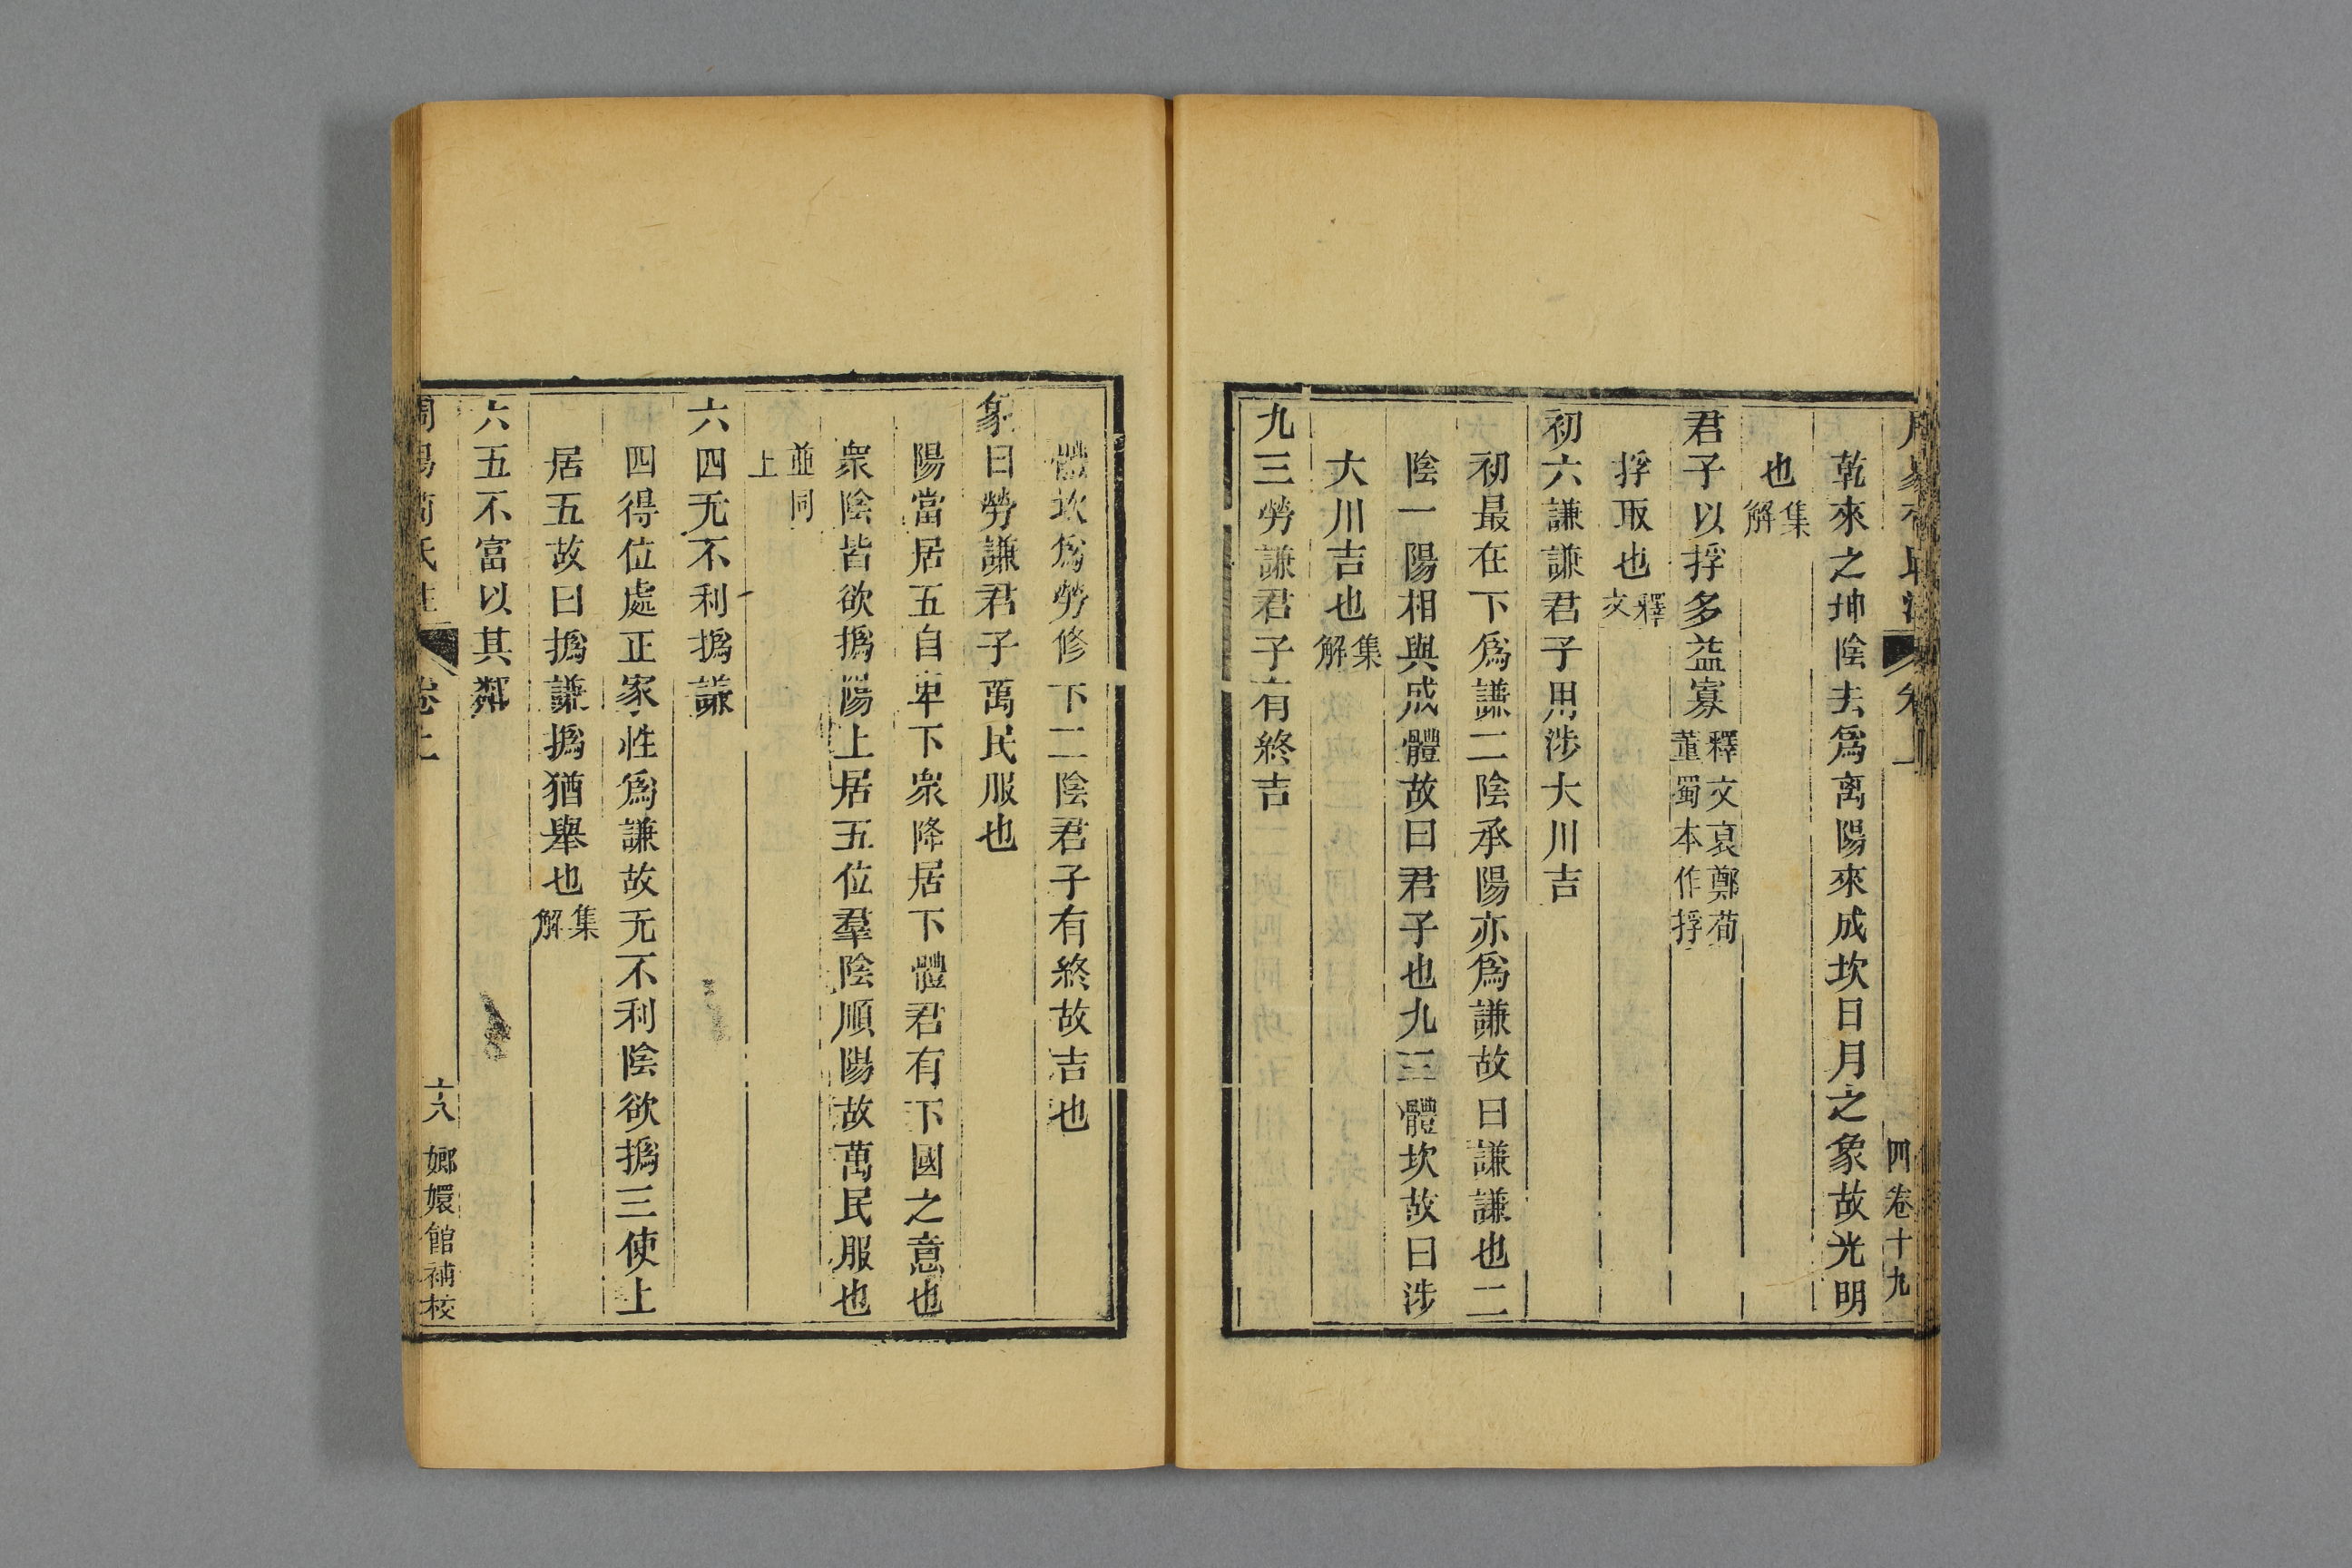 四卷十九
乾來之坤陰去爲离陽來成坎日月之象故光明
也集解
君子以捊多益寡釋文裒鄭荀董蜀本作捊
捊取也釋文
初六謙謙君子用涉大川吉
初最在下爲謙二陰承陽亦爲謙故曰謙謙也二
陰一陽相與成體故曰君子也九三體坎故曰涉
大川吉也集解
九三勞謙君子有終吉
體坎爲勞修下二陰君子有終故吉也
象曰勞謙君子萬民服也
陽當居五自卑下衆降居下體君有下國之意也
衆陰皆欲撝陽上居五位羣陰順陽故萬民服也
並同上
六四无不利撝謙
四得位處正家性爲謙故无不利陰欲撝三使上
居五故曰撝謙撝猶舉也集解
六五不富以其鄰
周易荀氏注 卷上 六八 嫏嬛館補校